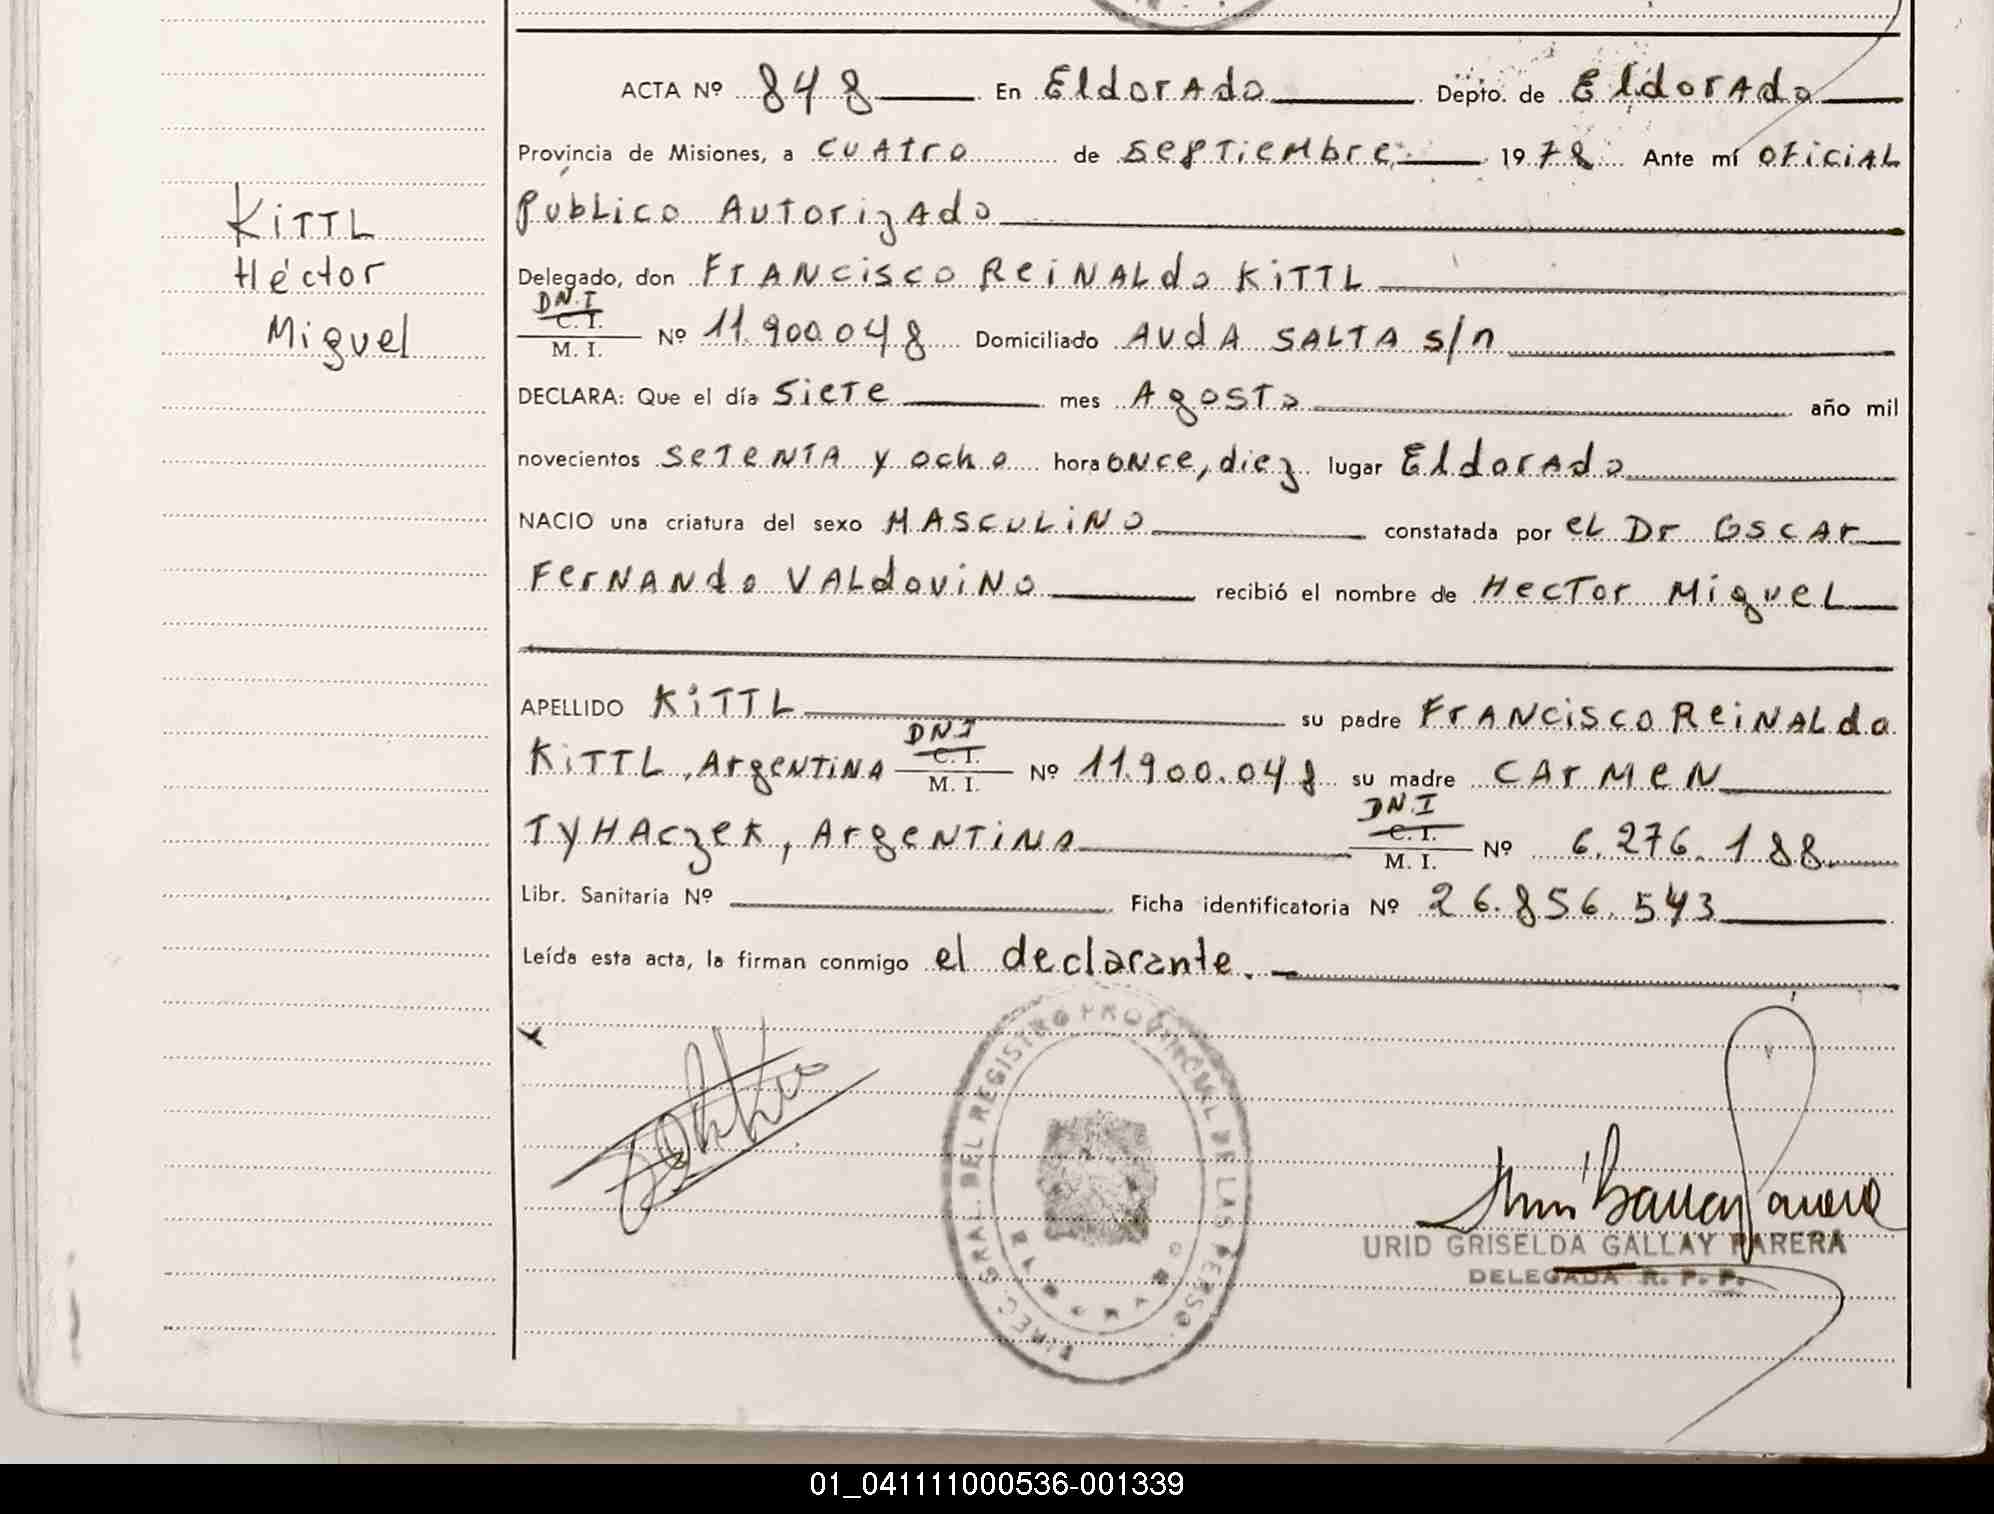 ACTA Nº 848 En Eldorado Depto. de Eldorado
Provincia de Misiones, a cuatro de septiembre 1978 Ante mí oficial
público Autorizado
Delegado, don Francisco Reinaldo Kittl
DNI
C. I.
M. I. Nº 11.900.048 Domiciliado Avda SALTA s/n
DECLARA: Que el día siete mes Agosto año mil
novecientos setenta y ocho hora once, diez lugar Eldorado
NACIO una criatura del sexo MASCULINO constatada por el Dr Oscar
Fernando Valdovino recibió el nombre de Hector Miguel
KITTL
Héctor
Miguel
APELLIDO KITTL su padre Francisco Reinaldo
Kittl, Argentina DNI C. I. M. I. Nº 11.900.048 su madre Carmen
Tyhaczek, Argentina DN.I C. I. M. I. Nº 6.276.188
Libr. Sanitaria Nº Ficha identificatoria Nº 26.856.543
Leída esta acta, la firman conmigo el declarante.
DIREC. GRAL. DEL REGISTRO PROVINCIAL DE LAS PERSO.
URID GRISELDA GALLAY PARERA
DELEGADA R. P. P.
01_041111000536-001339